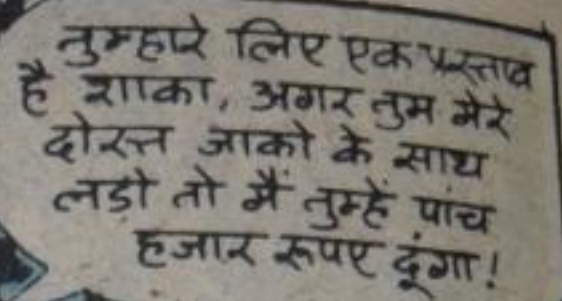 तुम्हारे लिए एक प्रस्ताव
है शाका, अगर तुम मेरे
दोस्त जाको के साथ
लड़ो तो मैं तुम्हें पांच
हजार रूपए दूंगा!